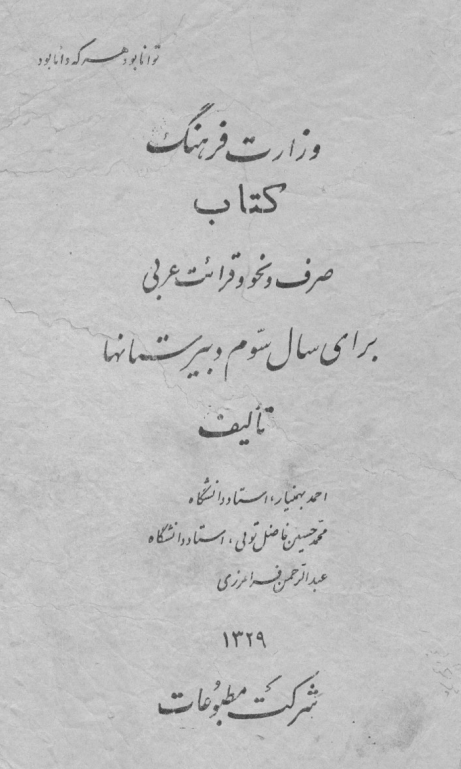 توانا بود هر که دانا بود
وزارت فرهنگ
کتاب
صرف و نحو و قرائت عربی
برای سال سوّم دبیرستانها
تألیف
احمد بهمنیار، استاد دانشگاه
محمّد حسین فاضل تونی، استاد دانشگاه
عبدالرّحمن فرامرزی
۱۳۲۹
شرکت مطبوعات